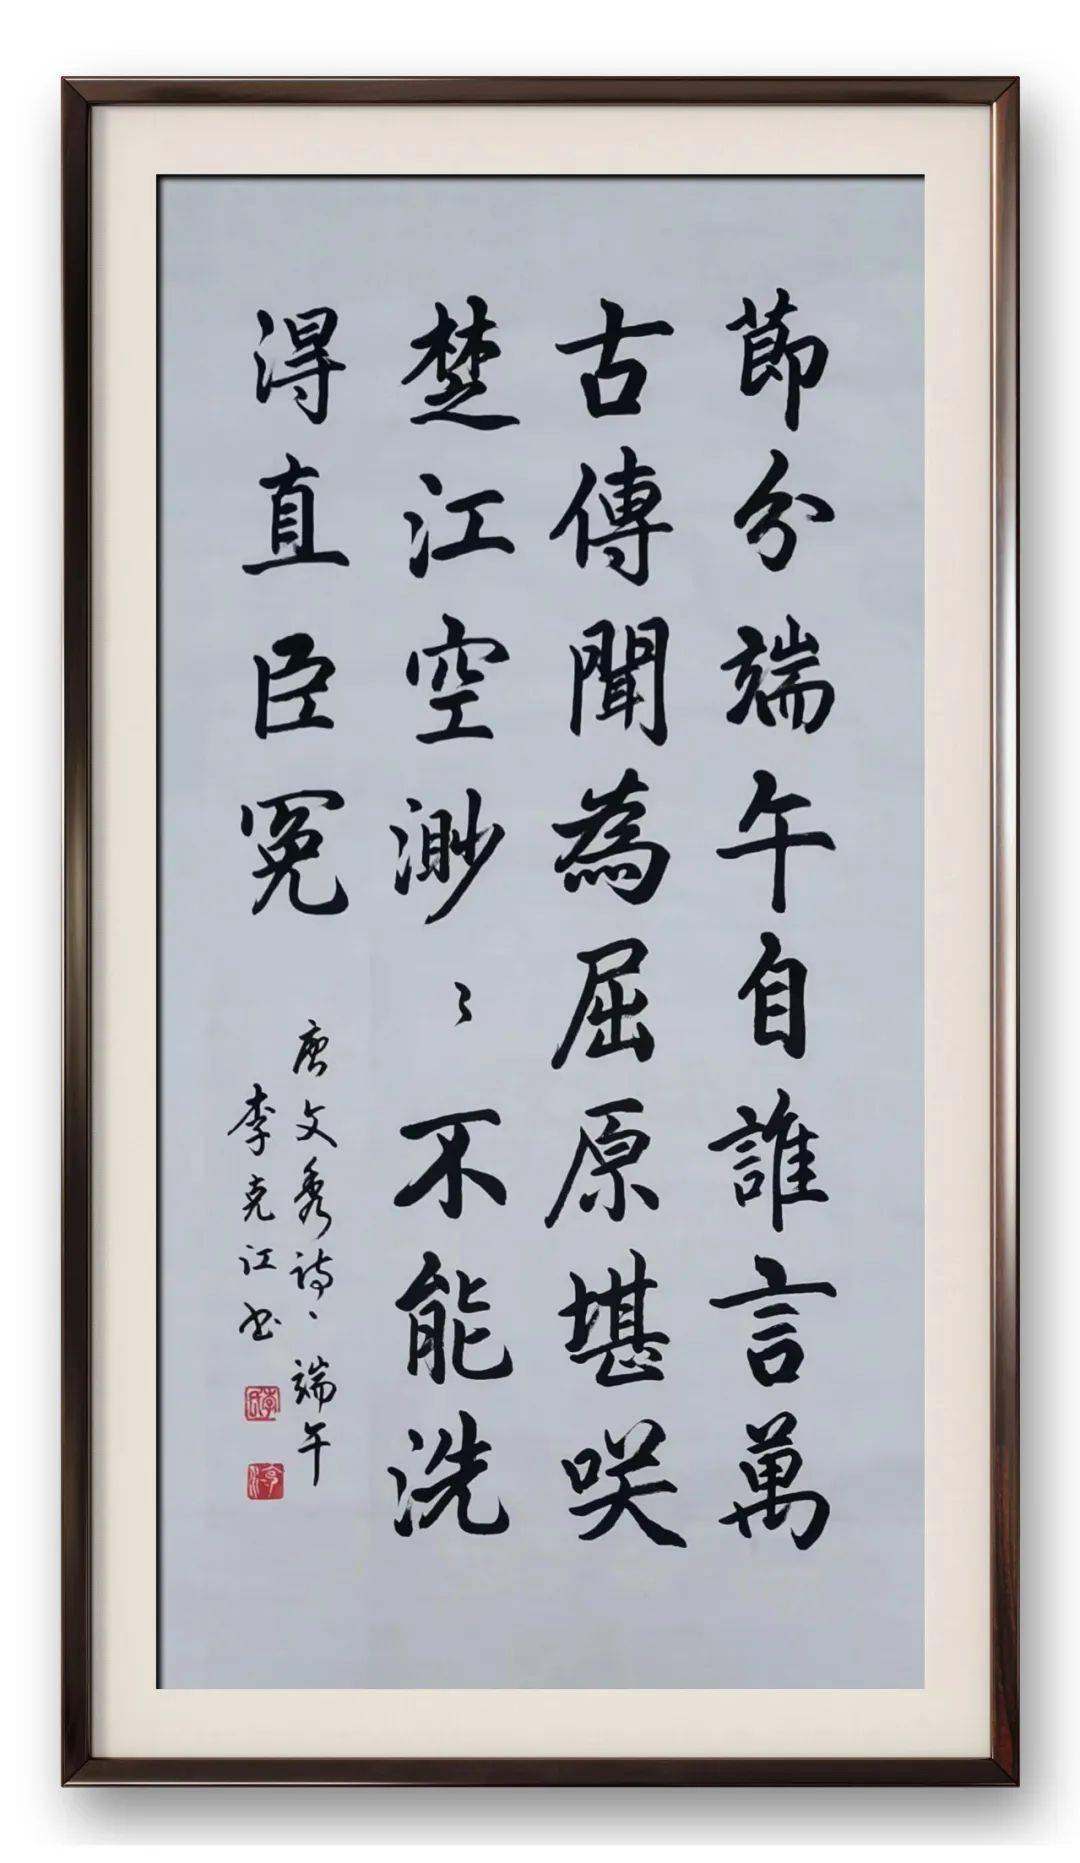 節分端午自誰言萬
古傳聞為屈原堪咲
楚江空渺〻不能洗
得直臣冤
唐文秀詩、端午
李克江书
李氏